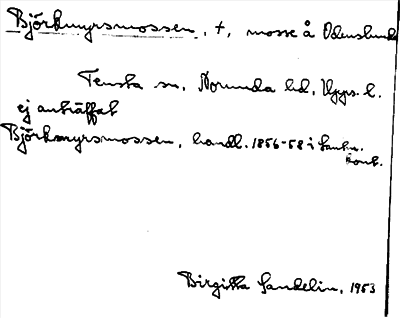 Björkmyrsmossen, +, mosse å Odenslunda
Tensta sn, Norunda hd, Upps. l.
ej anträffat
Björkmyrsmossen, handl. 1856-58 i Lantm.
kont.
Birgitta Sandelin, 1953